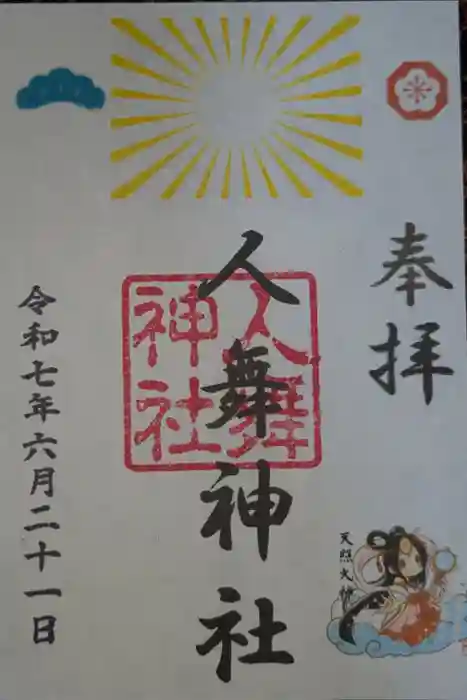 奉拝
人舞神社
人舞神社
令和七年六月二十一日
天照大神